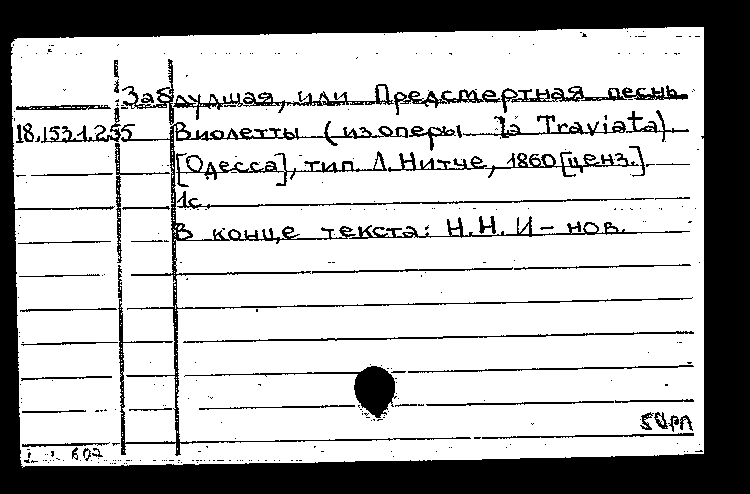 Заблудшая, или Предсмертная песнь
18.153.1.255 Виолетты (из оперы la Traviata).
[Одесса], тип. Л. Нитче, 1860 [ценз.].
1с.
В конце текста: Н.Н. И – нов.